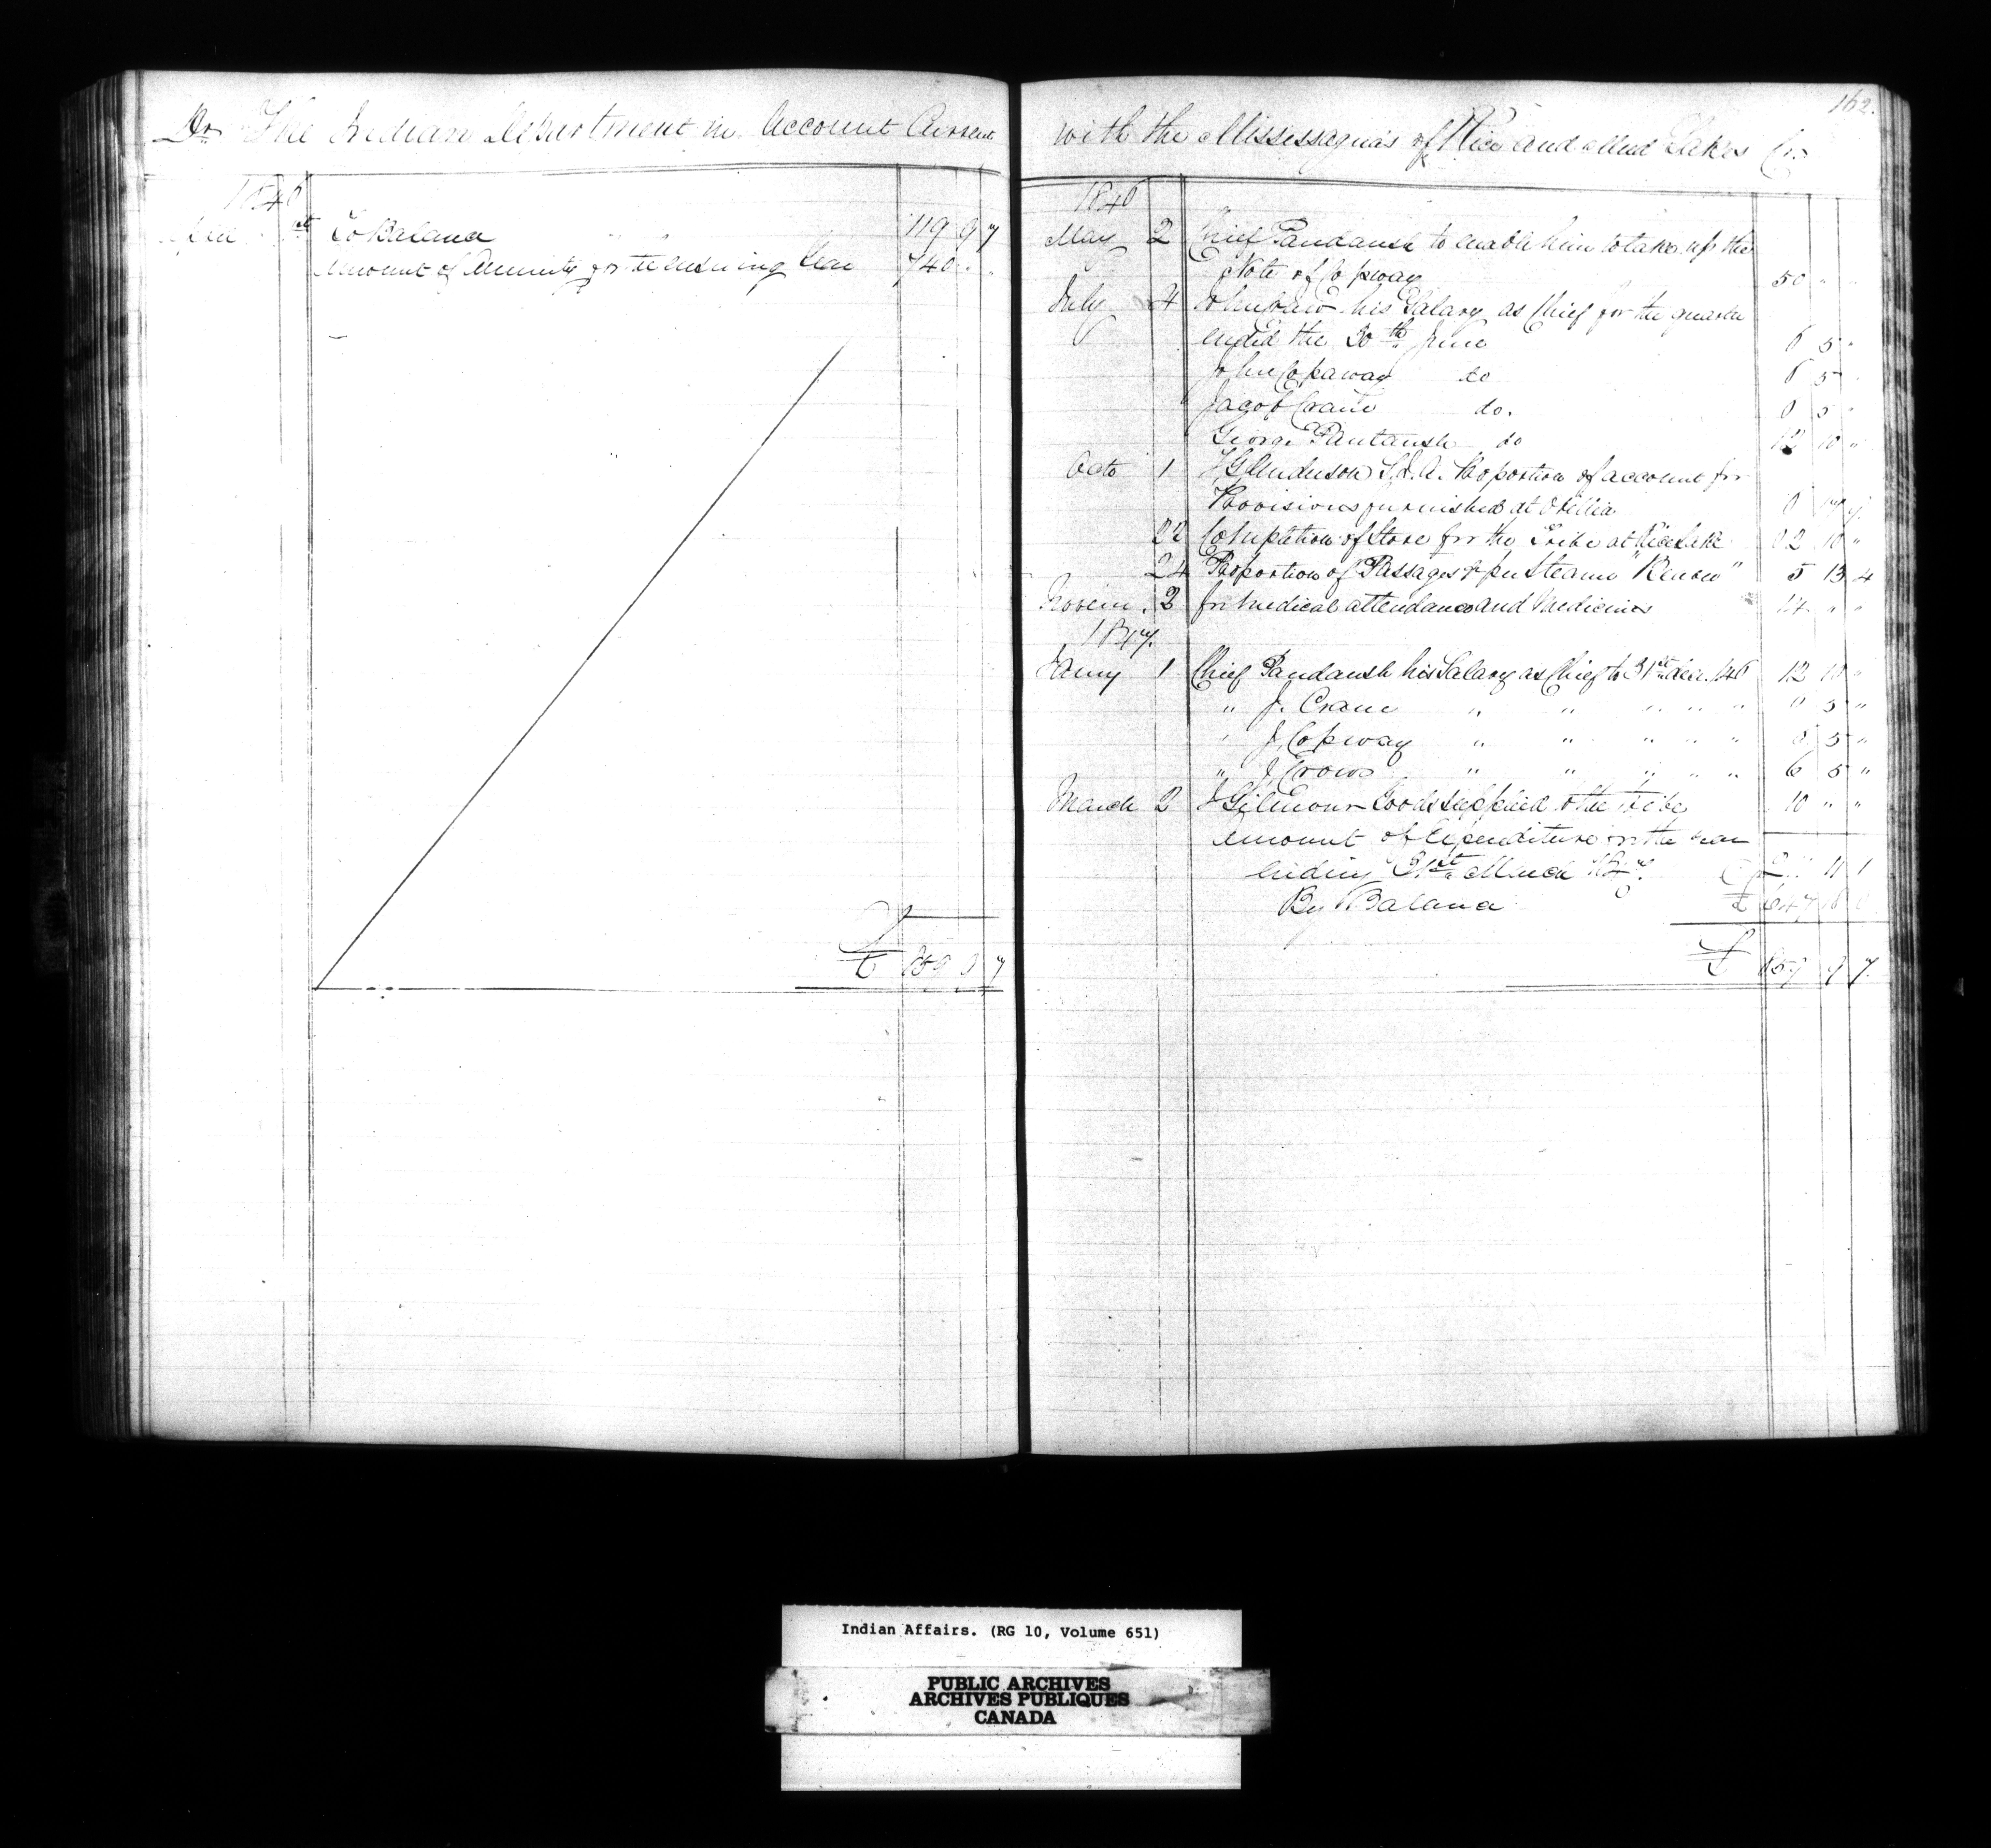 162.
Dr The Indian Department in Account Current
with the Mississagua's of Rice and Mud Lakes Cr.
1846
To Balance 119 9 7
Amount of Annuity for the ensuing Year 740 " "
£ 859 9 7
1846
May 2 Chief Paudaush to enable him to take up the
Note of Copway 50 " "
July 4 John Crow his Salary as Chief for the quarter
ended the 30th June 6 5 "
John Copaway do 6 5 "
Jacob Crane do. 6 5 "
George Pautaush do 12 10 "
Octo 1 T G Anderson S.I.A. Proportion of account for
Provisions furnished at Orillia
22 Completion of Store for the Tribe at Rice Lake
24 Proportion of Passages &c per Steamer " 5 13 4
Novem. 2 for Medical attendance and Medicines 14 " "
1847.
Jamy 1 Chief Paudaush his Salary as Chief to 31st decr. /46 12 10 "
" J. Crane " " " " " 6 5 "
" J. Copway " " " " " 6 5 "
" J. Crow " " " " " 6 5 "
March 2 J Gilmour Goods supplied to the Tribe 10 " "
Amount of Expenditure for the year
ending 31st March 1847. 11 1
By Balance £ 647
£ 859 9 7
Indian Affairs. (RG 10, Volume 651)
PUBLIC ARCHIVES
ARCHIVES PUBLIQUES
CANADA